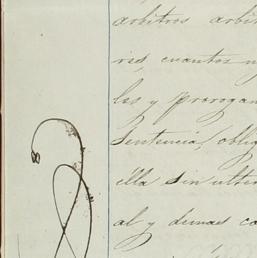 arbitros arbi
res, cuantos n
les y prorogan
sentencia, oblig
ella sin ulter
al y demas co